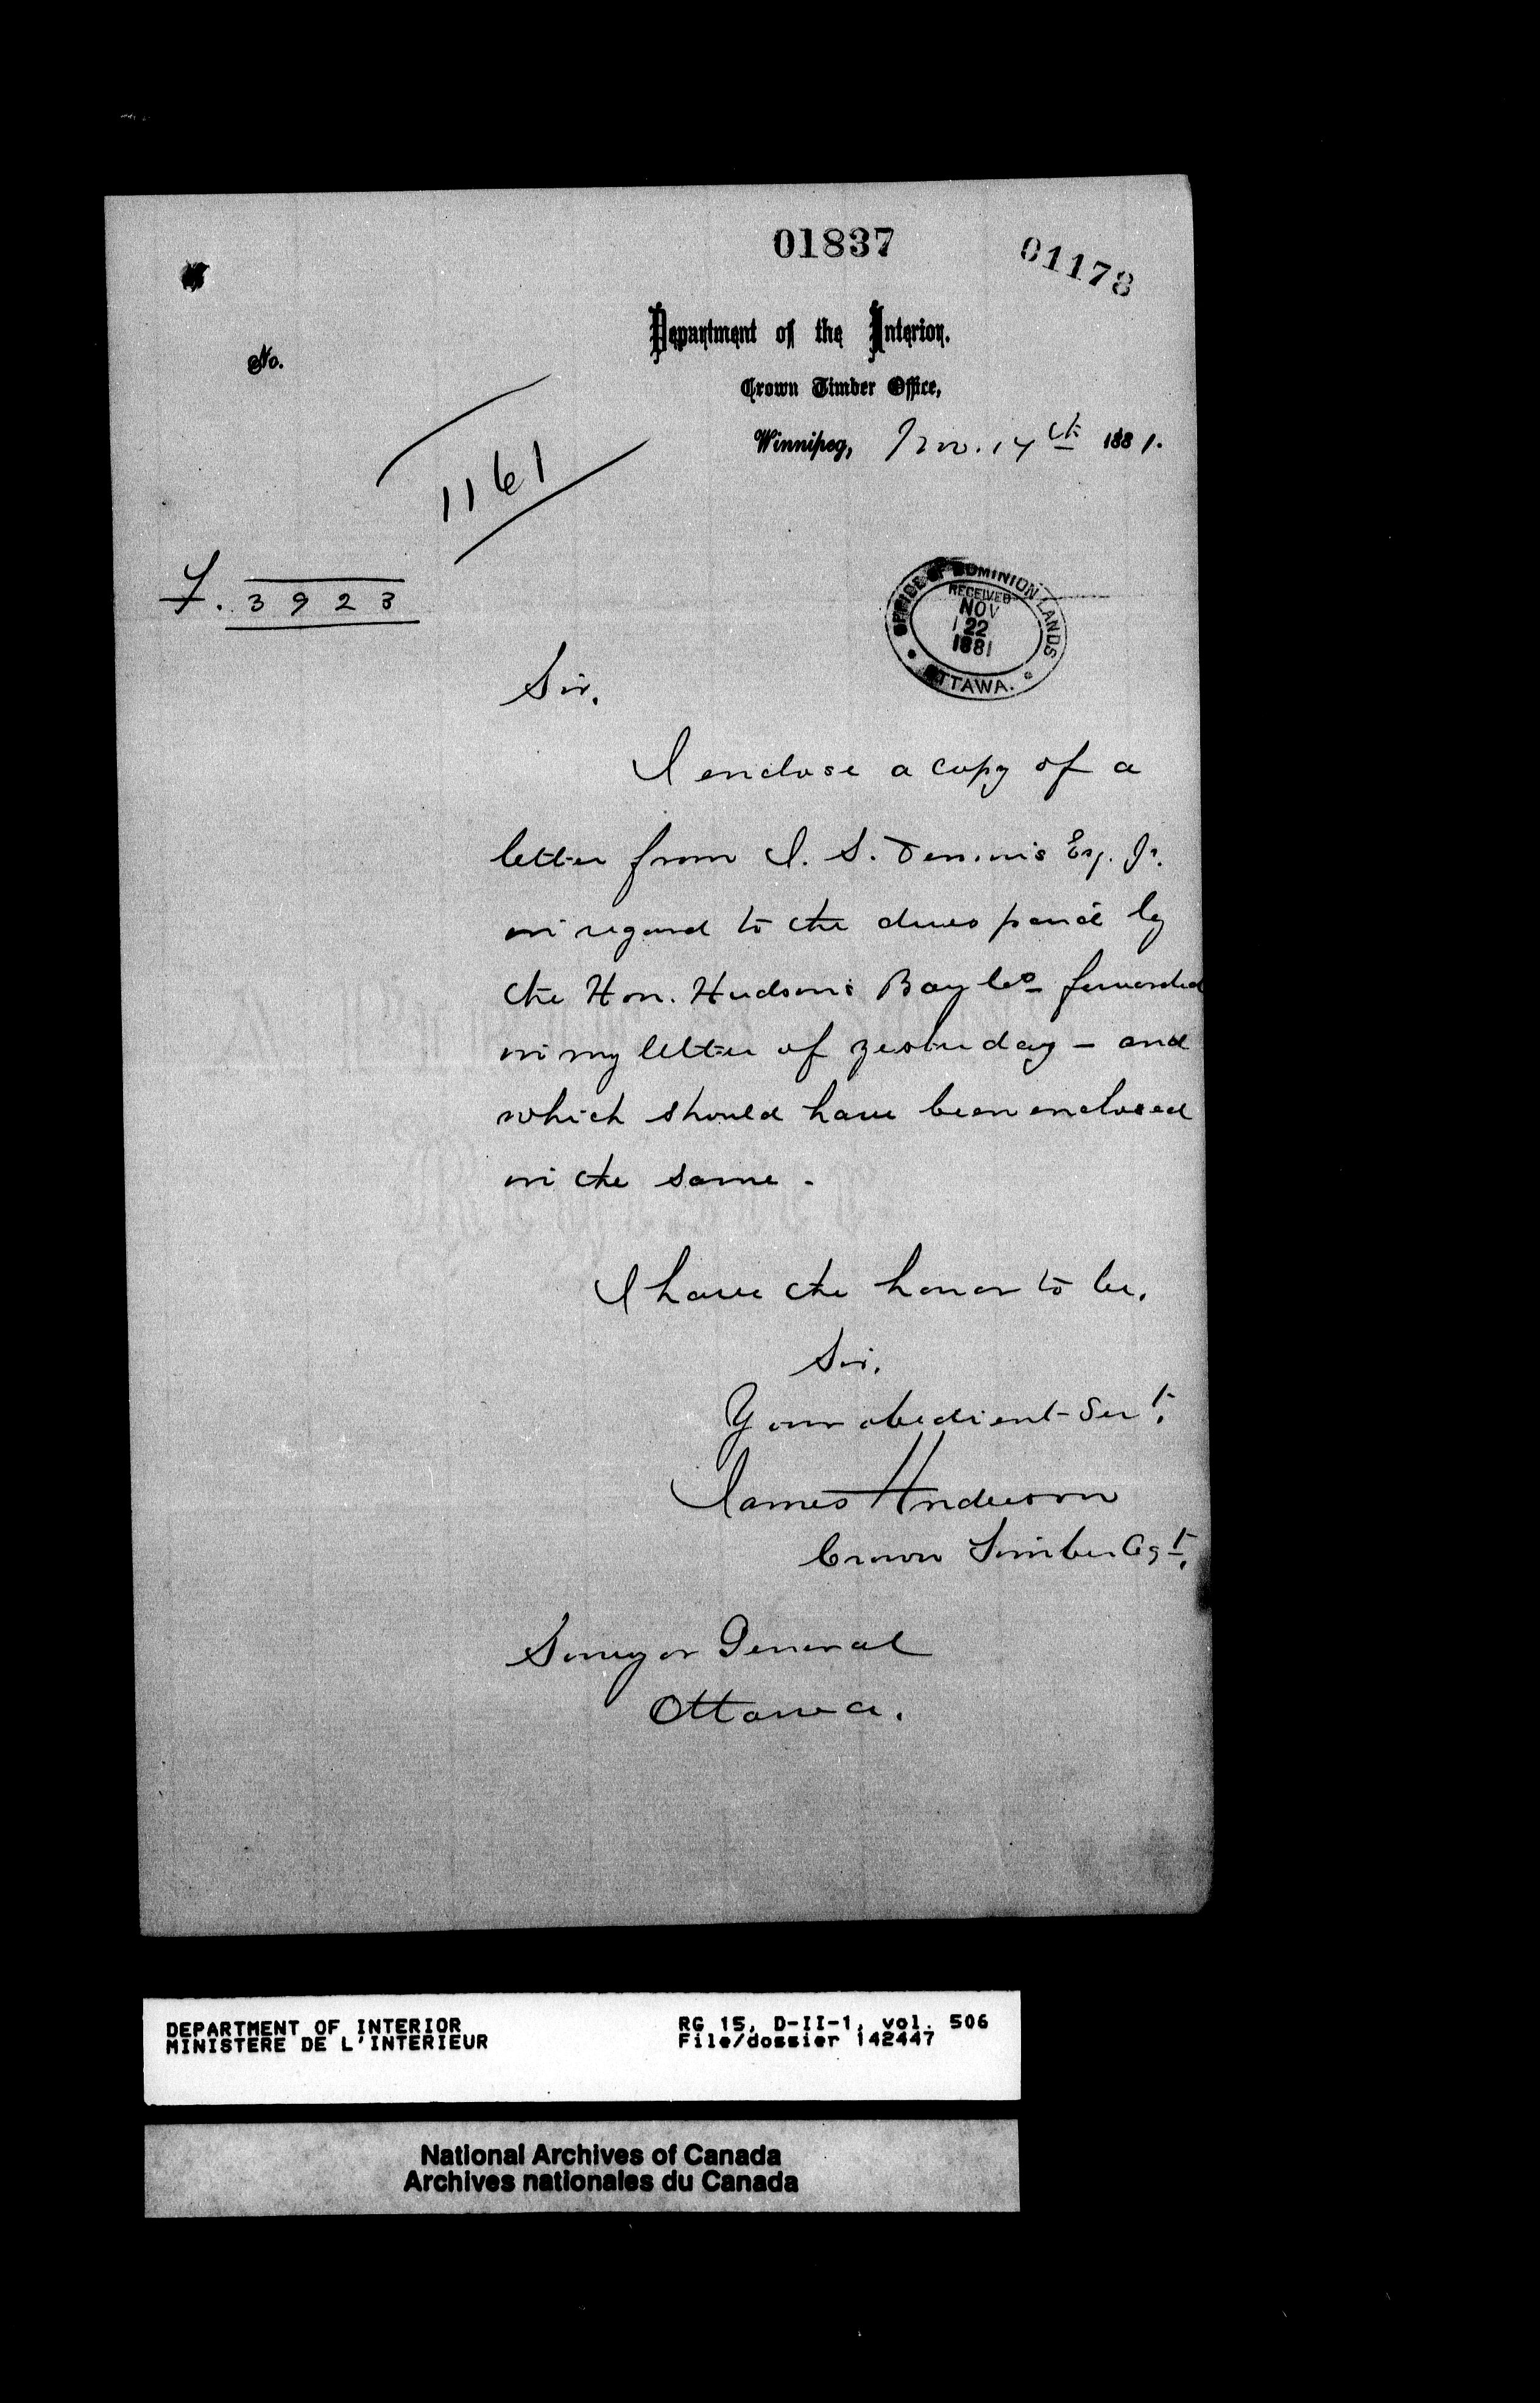 01837
01178
No.
Department of the Interior.
Crown Timber Office,
Winnipeg, Nov. 17th 1881.
1161
3923
OFFICE OF DOMINION LANDS
RECEIVED
NOV
22
1881
OTTAWA.
Sir.
I enclose a copy of a
letter from J. S. Dennis Esq. Jr.
in regard to the dues paid by
the Hon. Hudsons Bay Co forwarded
in my letter of yesterday - and
which should have been enclosed
in the same.
I have the honor to be.
Sir.
Your obedient Servt.
James Anderson
Crown Timber Agt.
Surveyor General
Ottawa.
DEPARTMENT OF INTERIOR
MINISTERE DE L'INTERIEUR
RG 15, D-II-1, vol. 506
File/dossier 142447
National Archives of Canada
Archives nationales du Canada